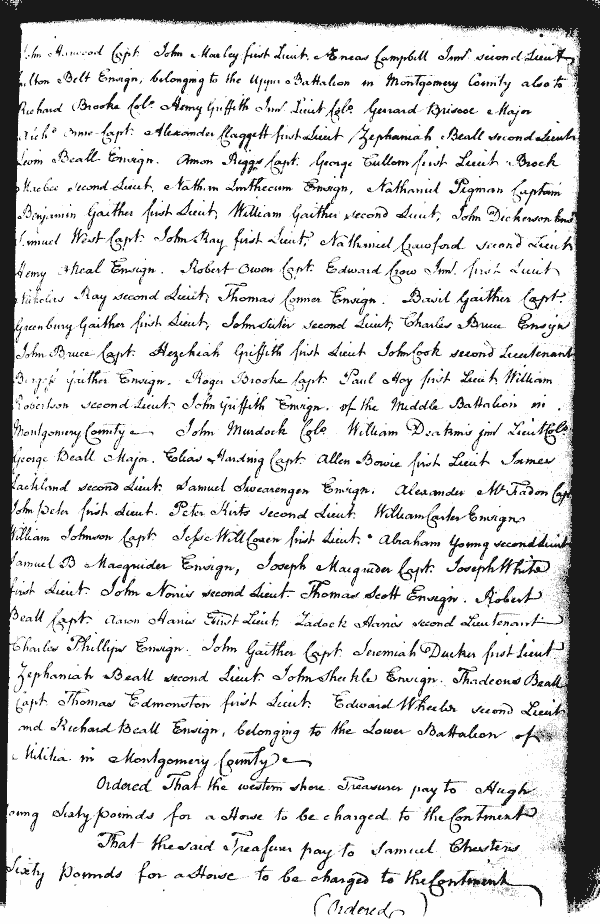 John Harwood Capt. John Maeley first Lieut. Aeneas Campbell Junr. second Lieut
Belt Ensign, belonging to the Upper Battalion in Montgomery County also to
Richard Brooke Colo. Henry Griffith Junr. Lieut Colo. Gerrard Briscoe Major
Capt. Alexander Claggett first Lieut, Zephaniah Beall second Lieut
Levin Beall Ensign. Amon Riggs Capt. George Cullom first Lieut Brock
second Lieut, Nathan Linthecum Ensign, Nathaniel Pigman Captain
Benjamin Gaither first Lieut, William Gaither second Lieut, John Dickerson Ens
Samuel West Capt. John Ray first Lieut, Nathaniel Crawford second Lieut
Henry ONeal Ensign. Robert Owen Capt. Edward Crow Junr. first Lieut
Nicholas Ray second Lieut, Thomas Conner Ensign. Basil Gaither Capt.
Greenbury Gaither first Lieut, John Suter second Lieut, Charles Bruce Ensign
John Bruce Capt. Hezekiah Griffith first Lieut John Cook second Lieutenant
Gaither Ensign. Roger Brooke Capt. Paul Hoy first Lieut William
Robertson second Lieut. John Griffith Ensign. of the Middle Battalion in
Montgomery County John Murdock Colo. William Deakins junr Lieut Colo.
George Beall Major. Elias Harding Capt. Allen Bowie first Lieut James
Lackland second Lieut. Samuel Swearengen Ensign. Alexander McFadon Cap
John Peter first Lieut. Peter Kirtz second Lieut. William Carter Ensign
William Johnson Capt. Jesse Willcoxen first Lieut. Abraham Young second Lieut
Samuel B Macgruder Ensign, Joseph Macgruder Capt. Joseph White
first Lieut. John Norris second Lieut Thomas Scott Ensign. Robert
Beall Capt. Aaron Harris First Lieut. Zadock Harris second Lieutenant
Charles Phillips Ensign. John Gaither Capt. Jeremiah Ducker first Lieut
Zephaniah Beall second Lieut. John Sheckle Ensign. Thadeous Beall
Capt. Thomas Edmonston first Lieut. Edward Wheeler second Lieut
and Richard Beall Ensign, belonging to the Lower Battalion of
Militia in Montgomery County
Ordered That the western shore Treasurer pay to Hugh
Young Sixty pounds for a Horse to be charged to the Continent
That the said Treasurer pay to Samuel Chestens
Sixty pounds for a Horse to be charged to the Continent
(Ordered)